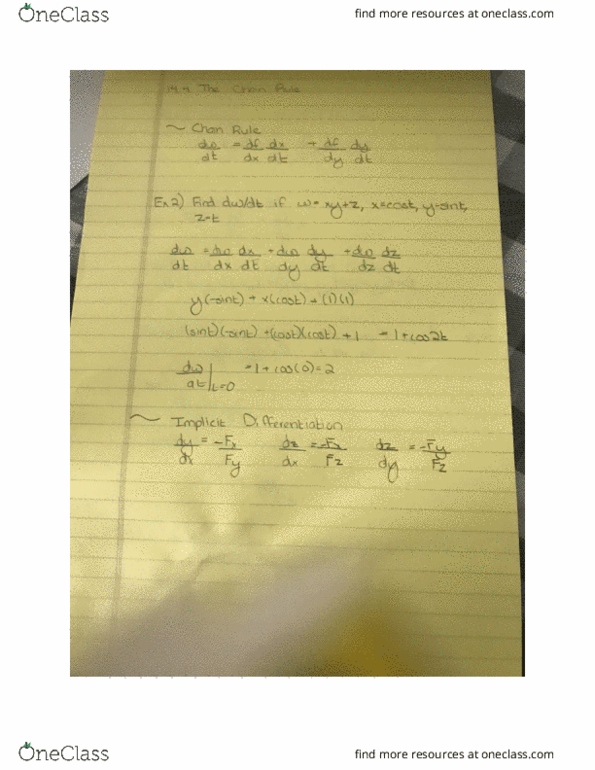 OneClass
find more resources at oneclass.com
14.4 The Chain Rule
~ Chain Rule
dw/dt = df/dx dx/dt + df/dy dy/dt
Ex 2) Find dw/dt if w=xy+z, x=cost, y=sint,
z=t
dw/dt = dw/dx dx/dt + dw/dy dy/dt + dw/dz dz/dt
y(-sint) + x(cost) + (1)(1)
(sint)(-sint) + (cost)(cost) + 1 = 1+cos2t
dw/dt|t=0 = 1+cos(0)=2
~ Implicit Differentiation
dy/dx = -Fx/Fy dz/dx = -Fx/Fz dz/dy = -Fy/Fz
OneClass
find more resources at oneclass.com